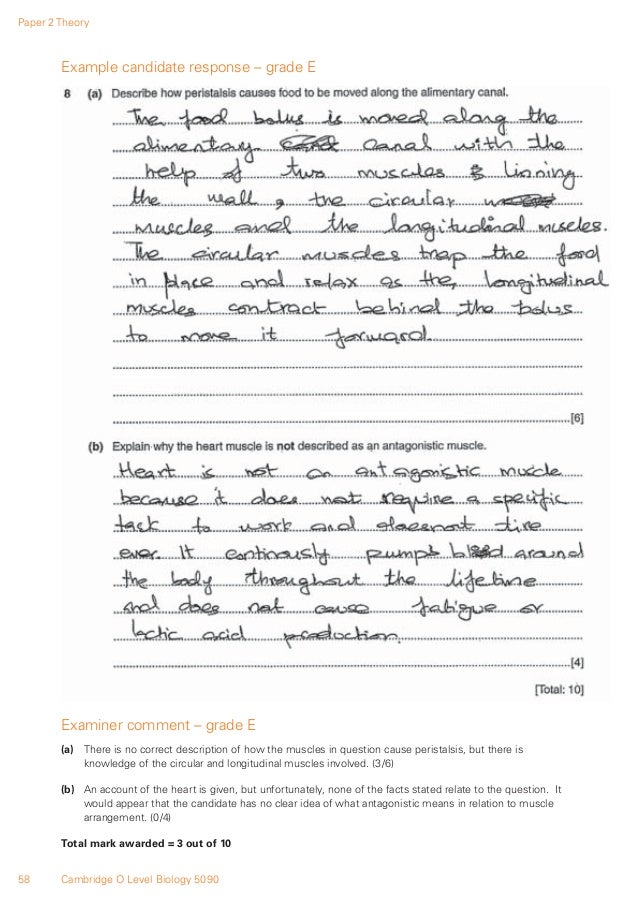 Paper 2 Theory
Example candidate response – grade E
8 (a) Describe how peristalsis causes food to be moved along the alimentary canal.
The food bolus is moved along the
alimentary canal with the
help of two muscles lining
the wall, the circular
muscles and the longitudinal muscles.
The circular muscles trap the food
in place and relax as the longitudinal
muscles contract behind the bolus
to move it forward.
[6]
(b) Explain why the heart muscle is not described as an antagonistic muscle.
Heart is not an antagonistic muscle
because it does not require a specific
tack to work and doesnot tire
ever. It continously pumps blood around
the body throughout the lifetime
and does not cause fatigue or
lactic acid production.
[4]
[Total: 10]
Examiner comment – grade E
(a) There is no correct description of how the muscles in question cause peristalsis, but there is
knowledge of the circular and longitudinal muscles involved. (3/6)
(b) An account of the heart is given, but unfortunately, none of the facts stated relate to the question. It
would appear that the candidate has no clear idea of what antagonistic means in relation to muscle
arrangement. (0/4)
Total mark awarded = 3 out of 10
58 Cambridge O Level Biology 5090